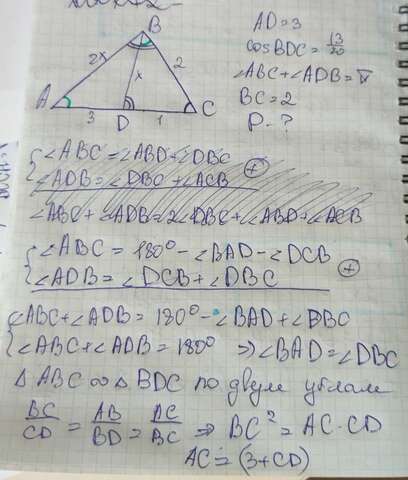 B
AD=3
cos BDC = 13/20
∠ABC+∠ADB=π
BC=2
P-?
2x
x
2
A
3
D
1
C
∠ABC=∠ABD+∠DBC
∠ADB=∠DBC+∠ACB
+
∠ABC+∠ADB=2∠DBC+∠ABD+∠ACB
∠ABC=180°-∠BAD-∠DCB
∠ADB=∠DCB+∠DBC
+
∠ABC+∠ADB=180°-∠BAD+∠DBC
∠ABC+∠ADB=180° ⇒∠BAD=∠DBC
△ABC ∞ △BDC по двум углам
BC/CD = AB/BD = AC/BC ⇒ BC²=AC·CD
AC=(3+CD)